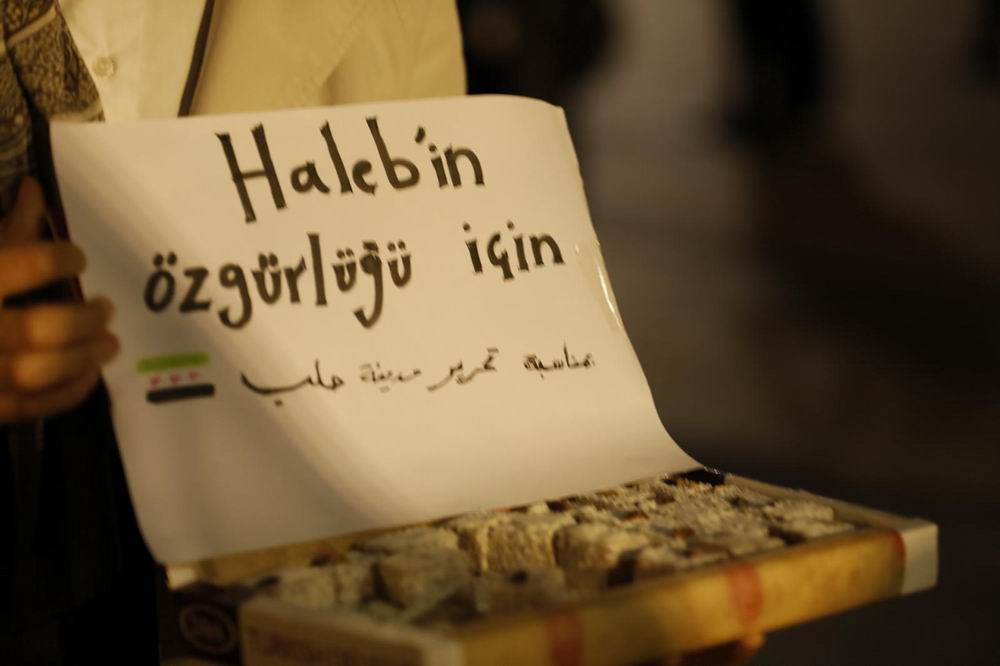 Haleb'in
özgürlüğü için
بمناسبة تحرير مدينة حلب